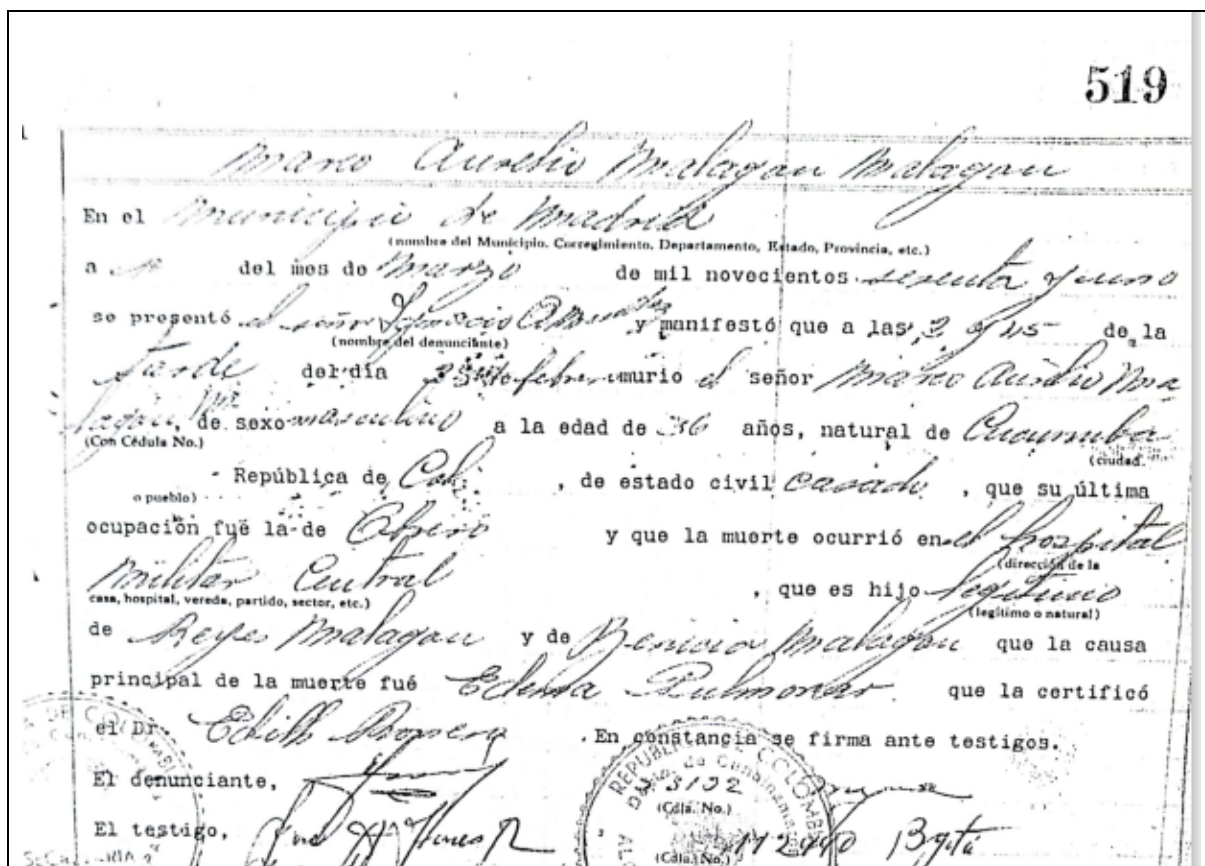 519
Marco Aurelio Malagon Malagon
En el Municipio de Madrid
(nombre del Municipio, Corregimiento, Departamento, Estado, Provincia, etc.)
a 1º del mes de Marzo de mil novecientos sesenta y uno
se presentó el señor Ignacio y manifestó que a las 3 y 45 de la
(nombre del denunciante)
tarde del día de febrero murio el señor Marco Aurelio Ma
lagon M, de sexo masculino a la edad de 36 años, natural de Cucunuba
(Con Cédula No.) (ciudad.
- República de Col. , de estado civil casado , que su última
o pueblo)
ocupación fué la de Obrero y que la muerte ocurrió en el Hospital
(dirección de la
Militar Central , que es hijo legitimo
casa, hospital, vereda, partido, sector, etc.) (legítimo o natural)
de Reyes Malagon y de Malagon que la causa
principal de la muerte fué Edema Pulmonar que la certificó
el Dr. Romero . En constancia se firma ante testigos.
El denunciante, 3132
(Cdla. No.)
El testigo, Bgtá
(Cdla. No.)
REPUBLICA COLOMBIA